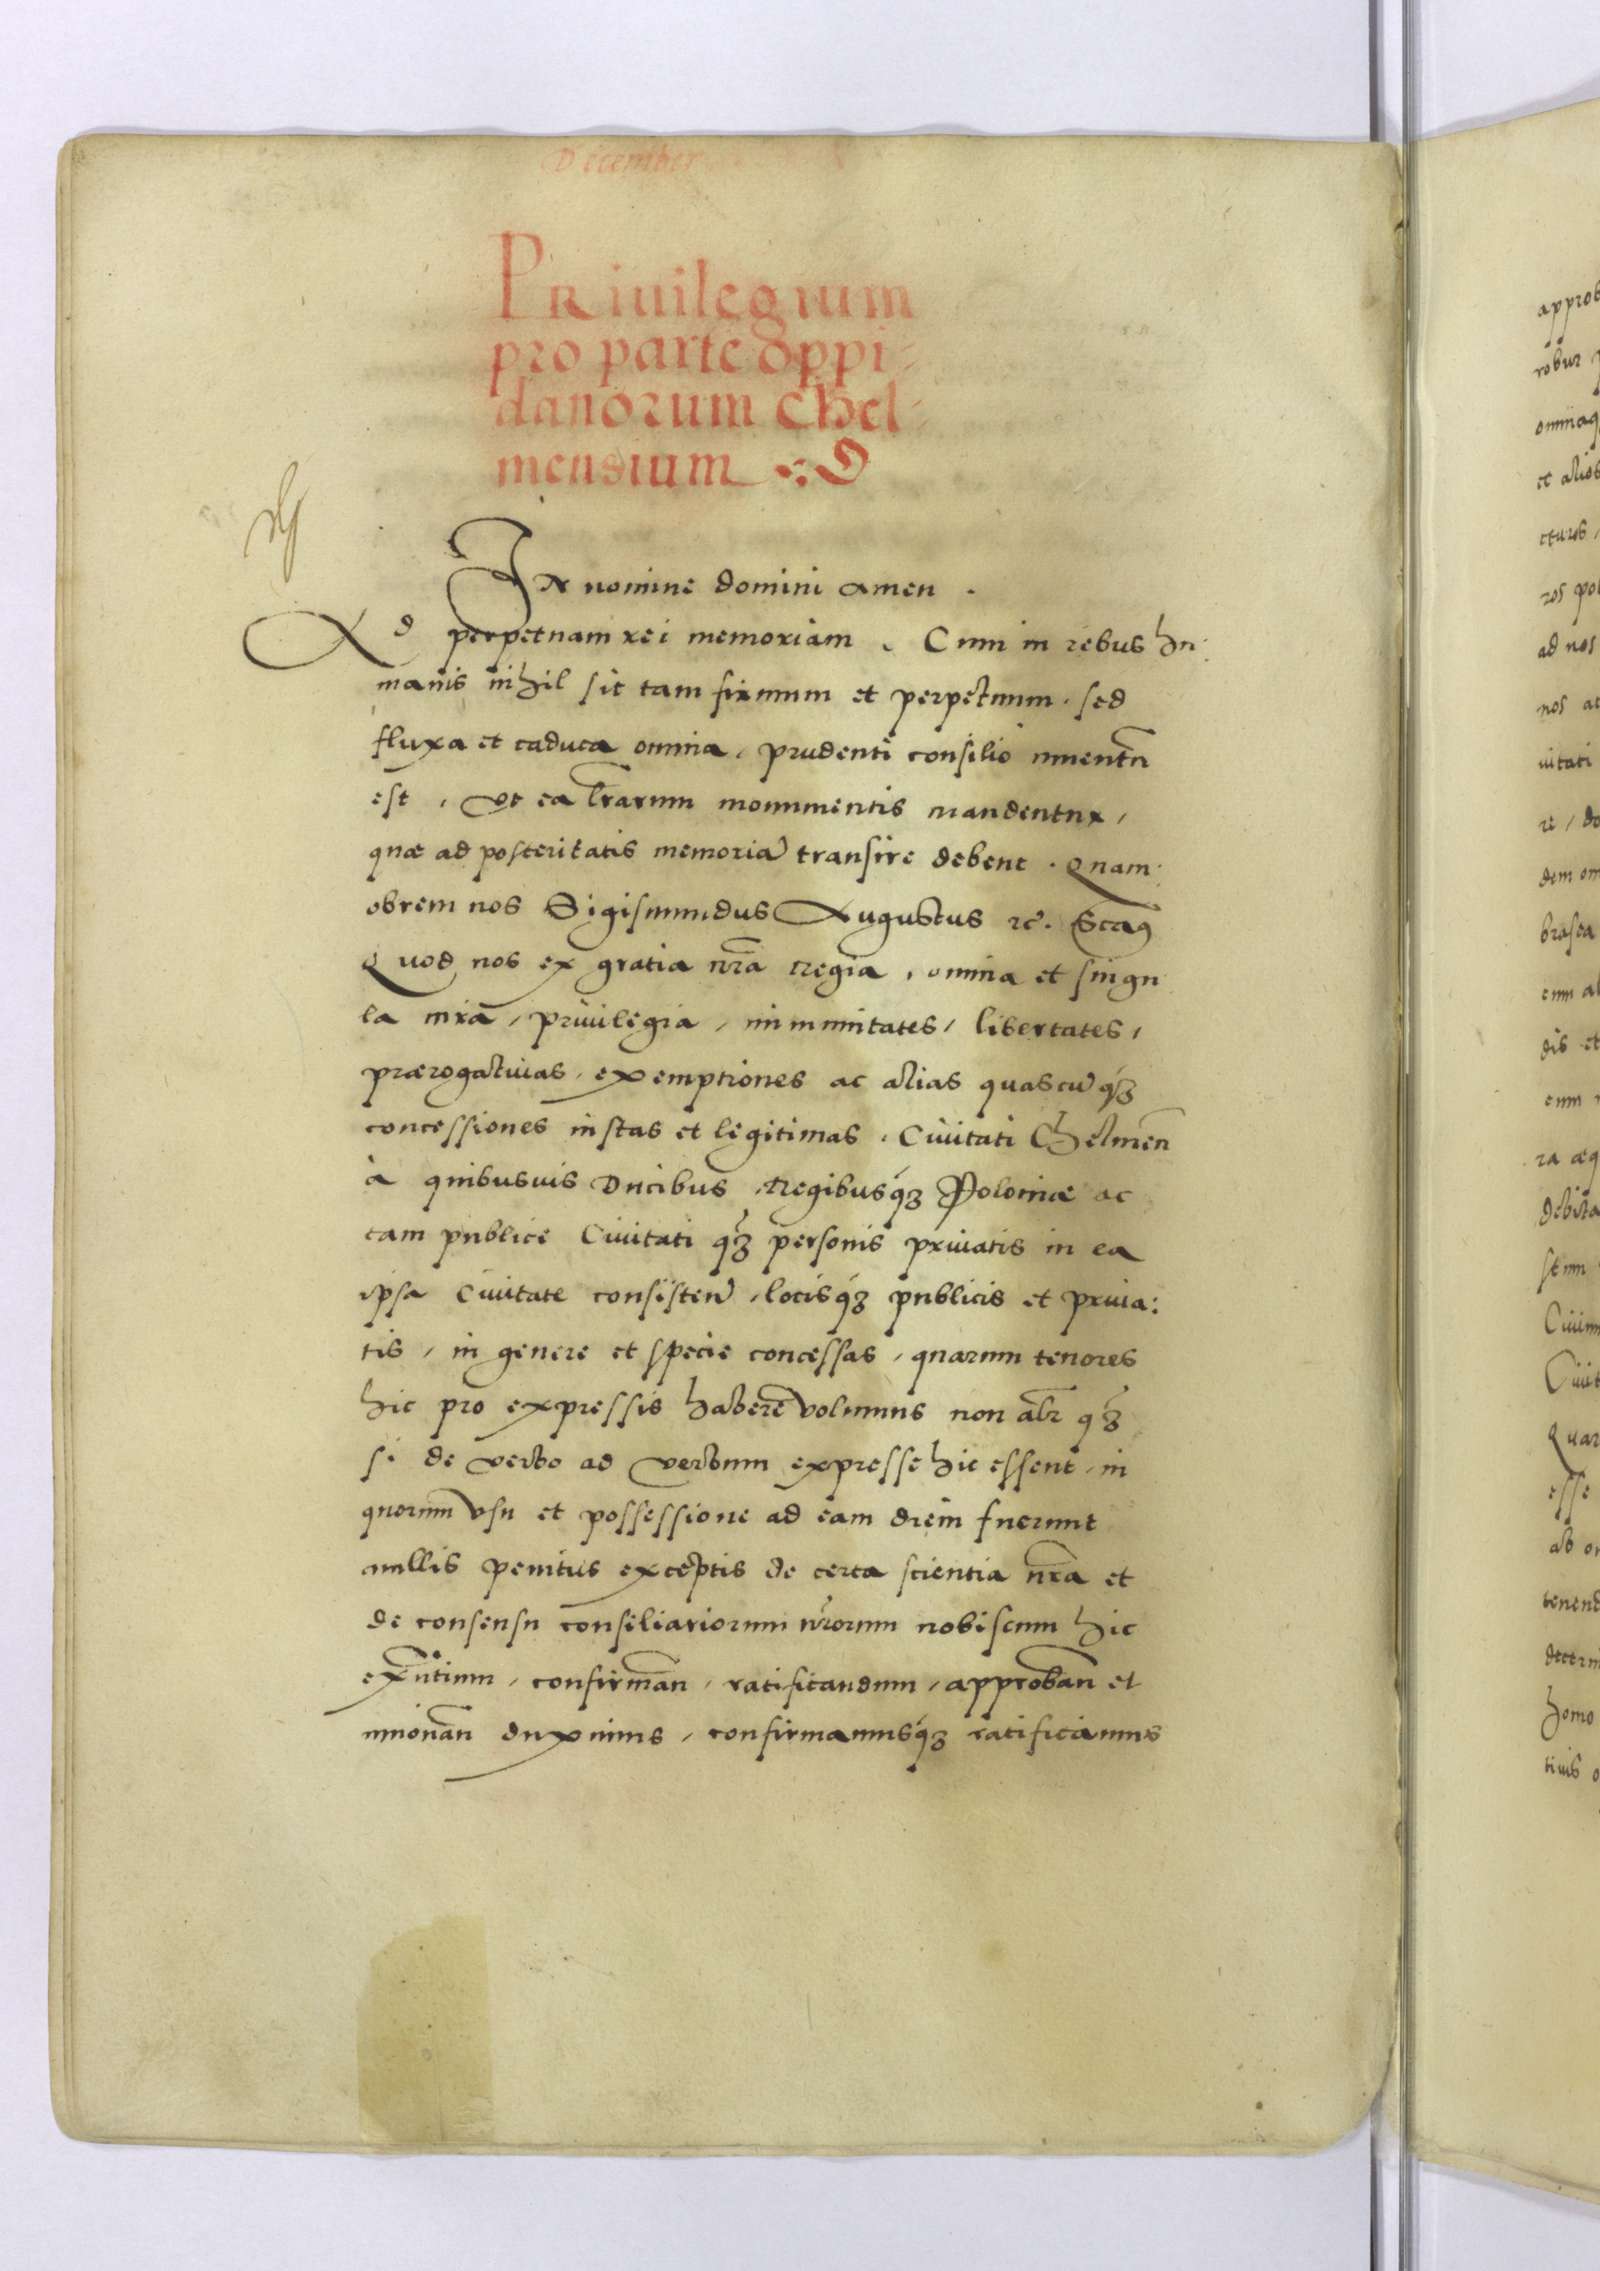 December
PRiuilegium
pro parte oppi-
danorum Chel-
mensium
In nomine domini amen .
Ad perpetuam rei memoriam . Cum in rebus hu:
manis nihil sit tam firmum et perpetuum . sed
fluxa et caduca omnia , prudenti consilio inuentū
est , vt ea lrarum monumentis mandentur ,
quæ ad posteritatis memoriā transire debent . Quam:
obrem nos Sigismundus Augustus rē .
Quod nos ex gratia nrā regia , omnia et singu
la iura , priuilegia , immunitates , libertates ,
prærogatiuas , exemptiones ac alias quascūqꝫ
concessiones iustas et legitimas , Ciuitati Chelmeñ
à quibusuis Ducibus , Regibusqꝫ Poloniæ ac
tam publice Ciuitati qꝫ personis priuatis in ea
ipsa Ciuitate consisteñ , locisqꝫ publicis et priua:
tis , in genere et specie concessas , quarum tenores
hic pro expressis haberē volumus non alr qꝫ
si de verbo ad verbum expresse hic essent , in
quorum vsu et possessione ad eam diem fuerunt
nullis penitus exceptis de certa scientia nrā et
de consensu consiliariorum nrorum nobiscum hic
exñtium , confirmañ , ratificandum , approbañ et
innouañ duximus , confirmamusqꝫ ratificamus
approb
robur
omniaq
et alios
cturos ,
ros pol
ad nos
nos ac
uitati
re , do
dem om
brasea
eum al
dis et
eum
ra æq
debita
stum
Ciuium
Ciuit
Quar
esse
ab on
tenend
decerni
homo
tiuis o